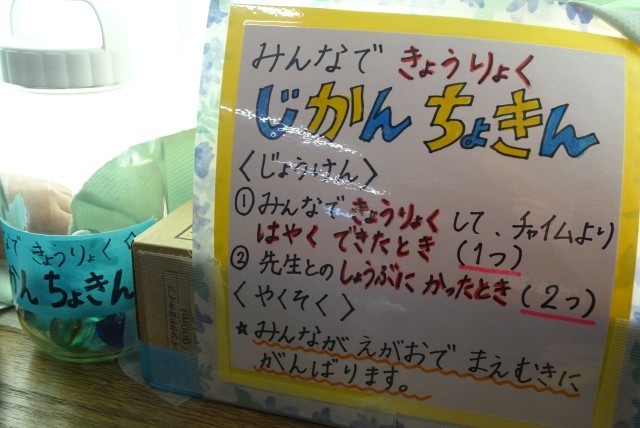 みんなで きょうりょく
じかん ちょきん
<じょうけん>
①みんなで きょうりょく して、チャイムより
はやく できたとき (1つ)
②先生との しょうぶに かったとき (2つ)
<やくそく>
☆みんなが えがおで まえむきに
がんばります。
なで きょうりょく ☆
かん ちょきん